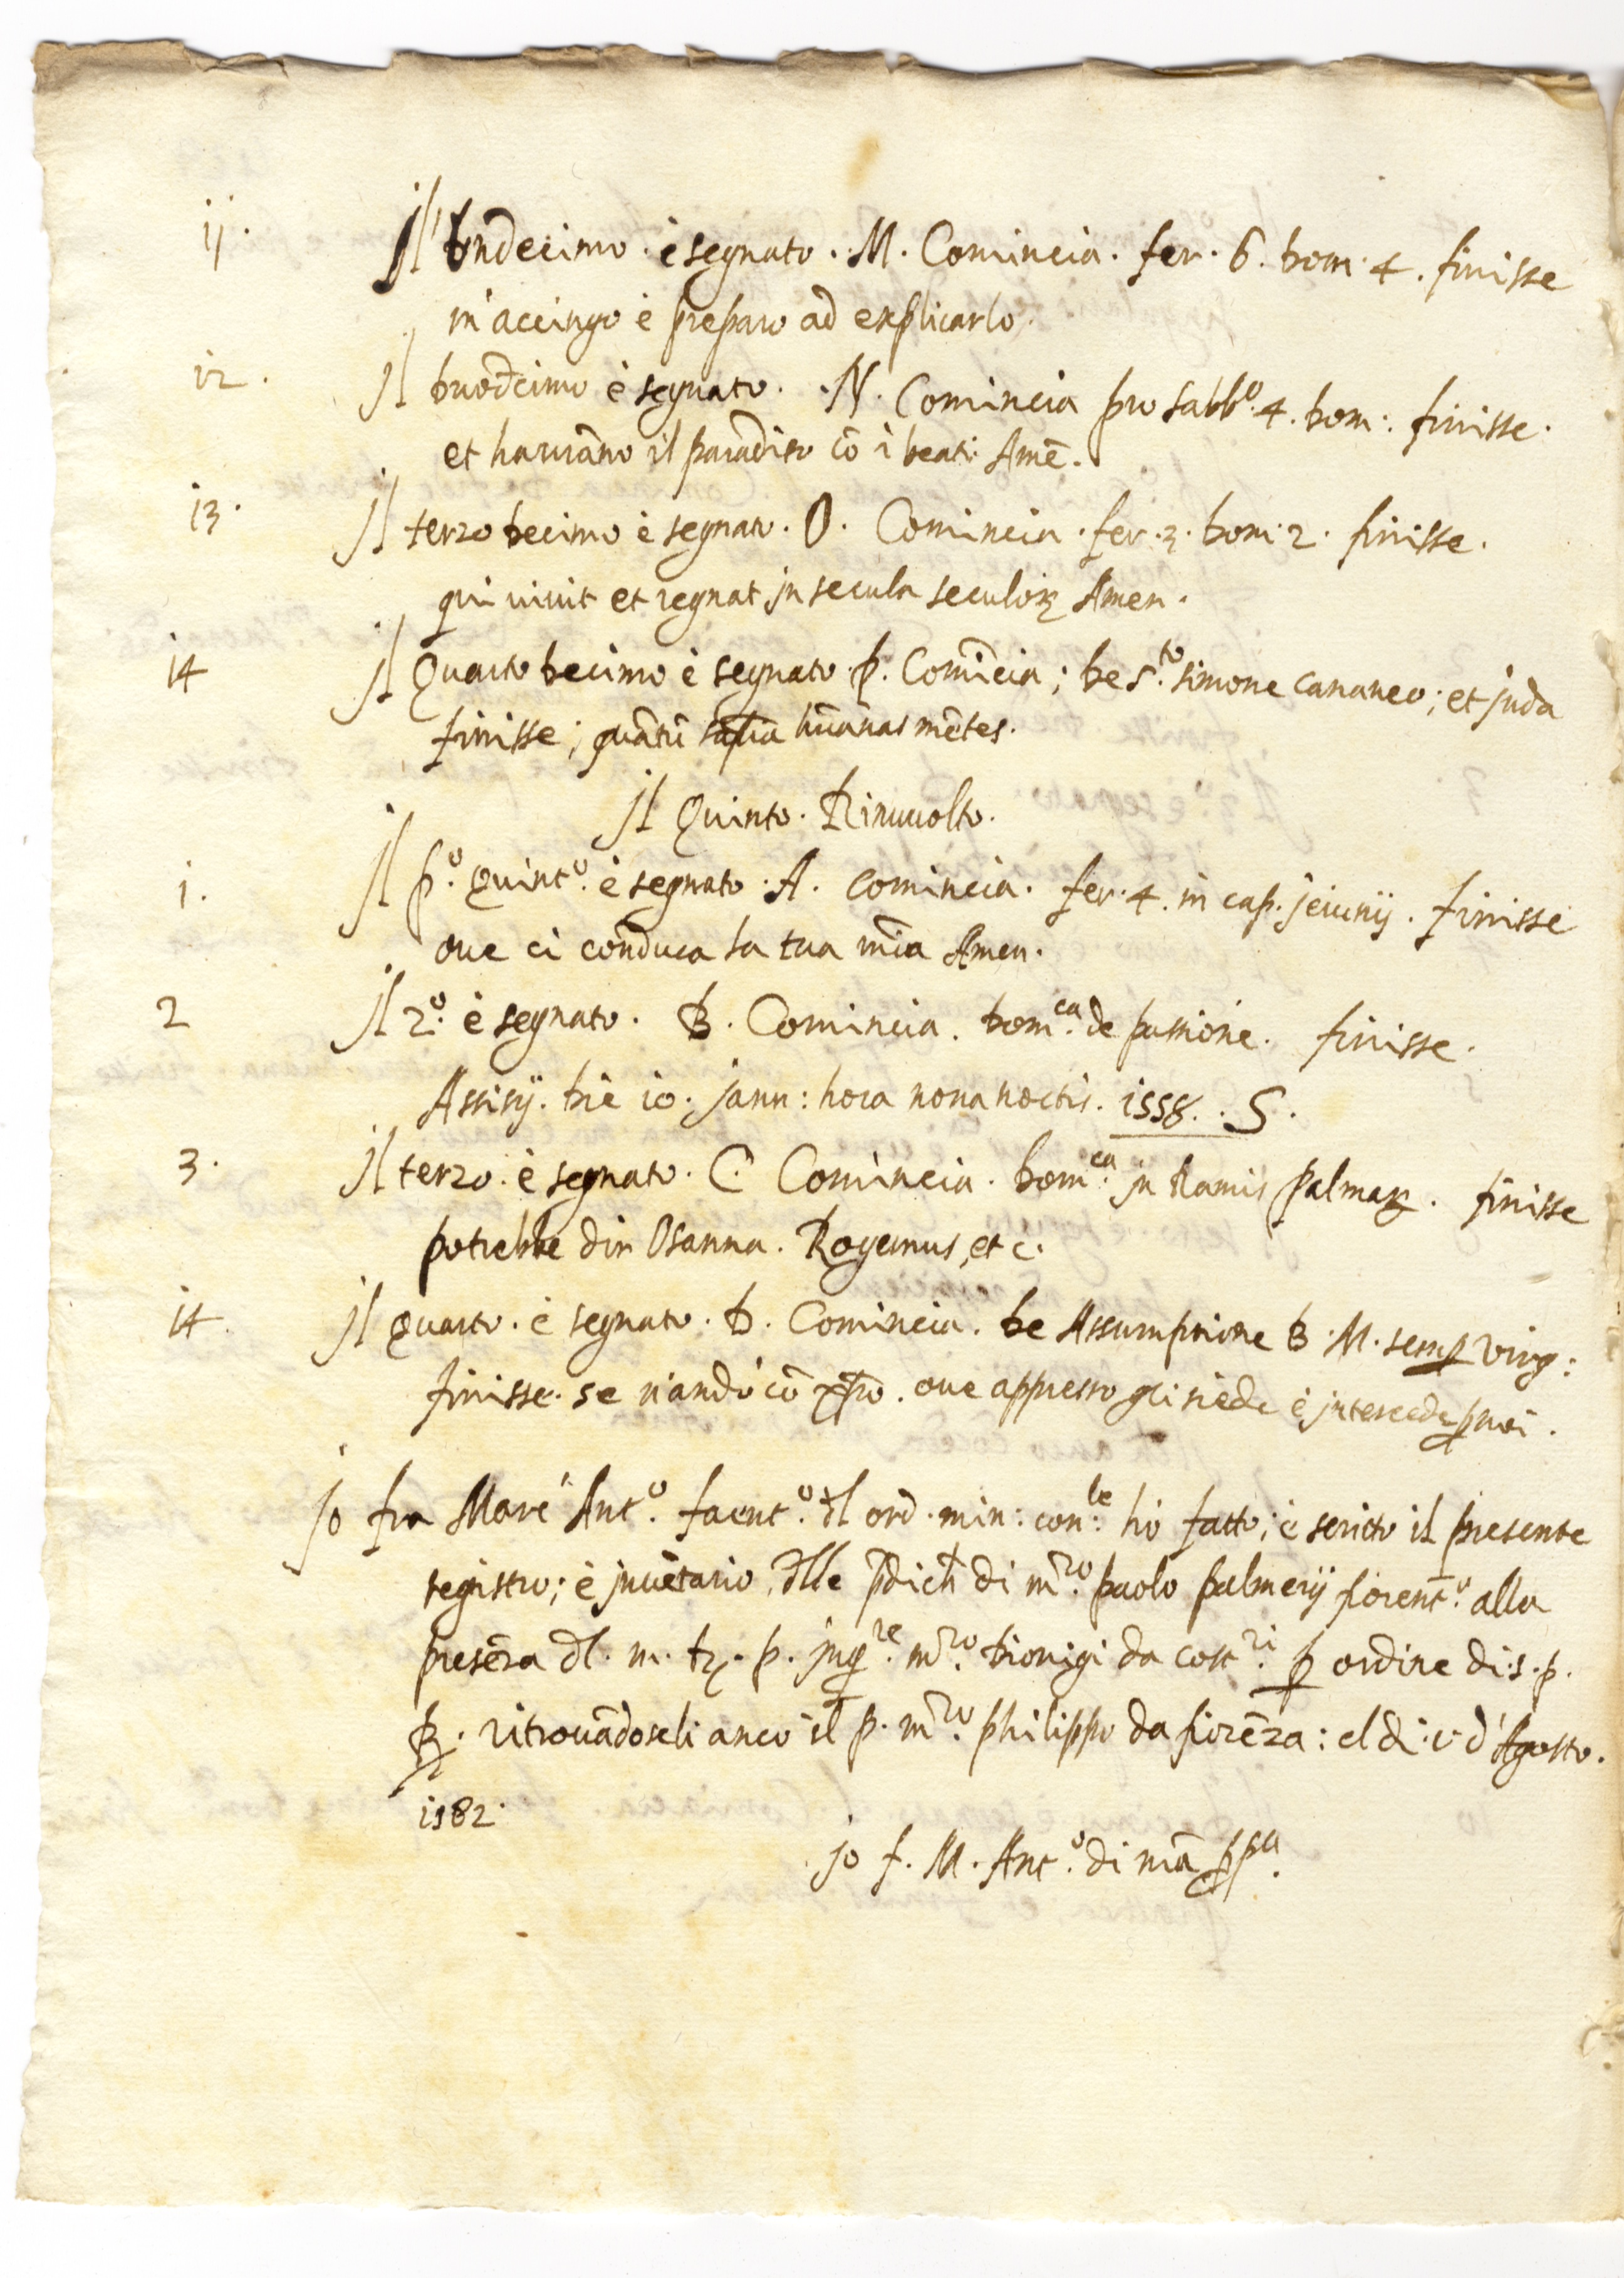 11. Il undecimo è segnato. M. Comincia. fer. 6. Dom. 4. finisse
m'accingo è preparo ad explicarlo.
12. Il Duodecimo è segnato. N. Comincia pro sabbº. 4. Dom: finisse.
et harrāno il paradiso cō i beati Amē.
13. Il terzo Decimo è segnato. O. Comincia. fer. 3. Dom. 2. finisse.
qui viuit et regnat in secula seculoꝝ Amen.
14 Il Quarto Decimo è segnato. P. Comīcia; De s.to simone cananeo; et juda
finisse; quātū hūanas mētes.
Il Quinto. Rinuuolto.
1. Il pº. Quintº. è segnato. A. comincia. fer. 4. in cap. jeiunij. finisse
oue ci conduca la tua mīa Amen.
2 Il 2º. è segnato. B. Comincia. Dom.ca de passione. finisse.
Assisij. Die 10. jann: hora nona noctis. 1558. S.
3. Il terzo. è segnato. C. Comincia. Dom.ca in Ramis palmaꝝ. finisse
potrebbe dir Osanna. Rogemus, et c.
14. Il Quarto. è segnato. D. Comincia. De Assumptione B. M. semꝑ virg:
finisse. se n'andò cō xp̄o. oue appresso gli siede è intercede ꝑ noi.
Io fra Marc' Antº. faentº. dl ord. min: con:le hò fatto; è scritto il presente
registro; è inuētario, dlle p̄dich di m.ro paolo palmerij fiorentº. alla
presēza dl. m. . p. inq.re m.ro Dionigi da cost.ri ꝑ ordine di. s. p.
R. ritrouādoseli anco il p. m.ro philippo da fiorēza: el di. 1. d'Agosto.
1582.
Io f. M. Antº. di mā ꝓpa.